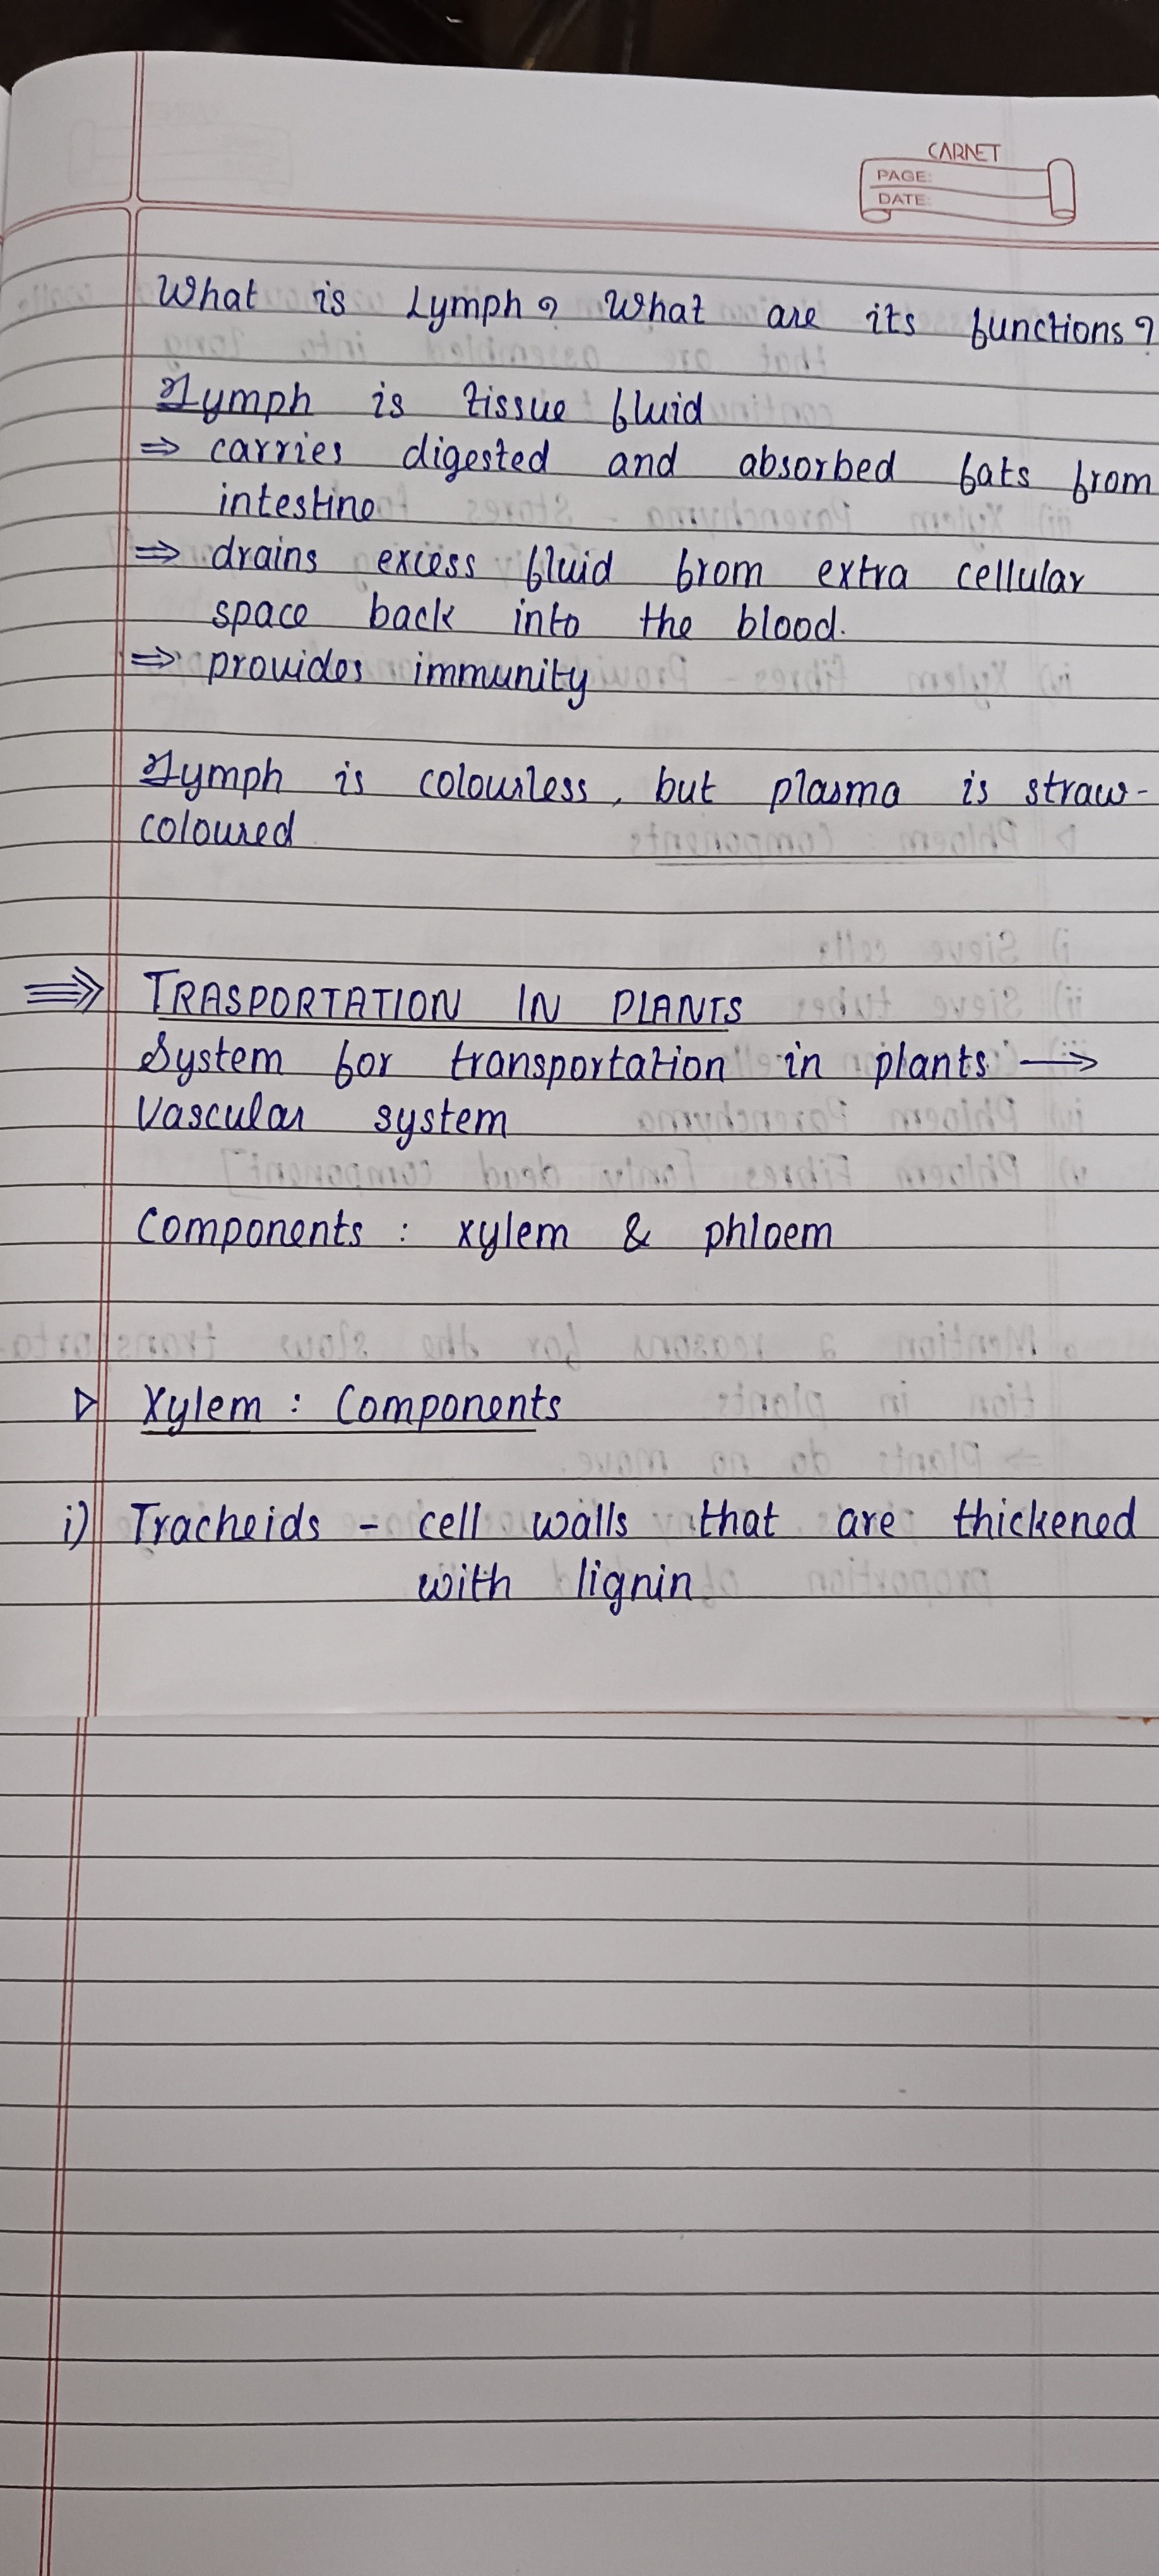 CARNET
PAGE:
DATE:
What is Lymph? What are its functions?
Lymph is tissue fluid
⇒ carries digested and absorbed fats from
intestine
⇒ drains excess fluid from extra cellular
space back into the blood.
⇒ provides immunity
Lymph is colourless, but plasma is straw-
coloured
⇒ TRASPORTATION IN PLANTS
System for transportation in plants →
Vascular system
Components : xylem & phloem
▷ Xylem : Components
i) Tracheids - cell walls that are thickened
with lignin